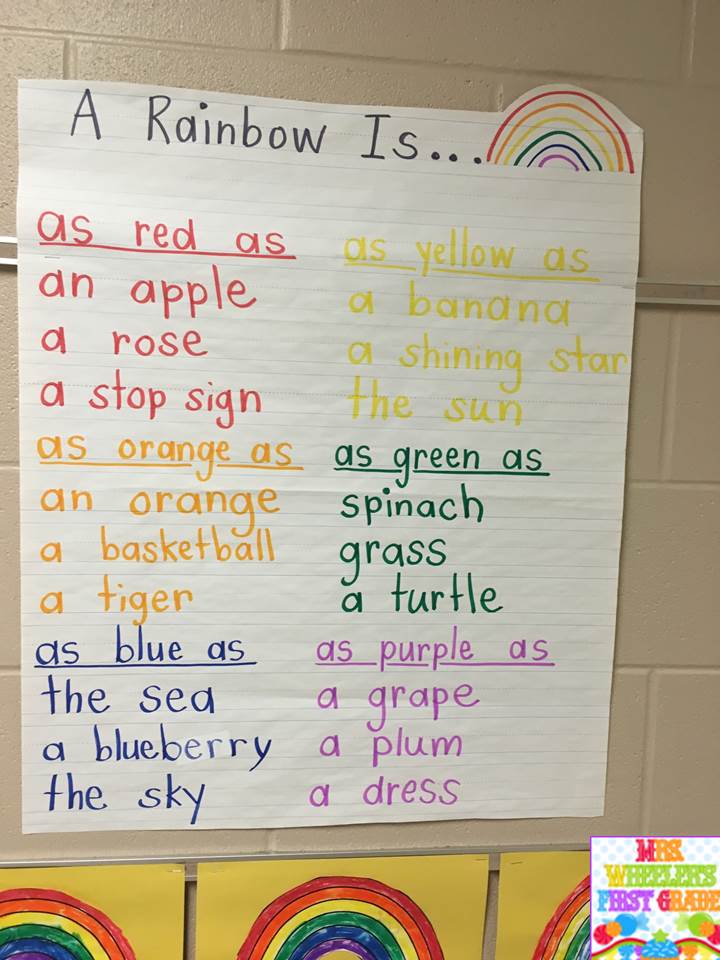 A Rainbow Is...
as red as
an apple
a rose
a stop sign
as orange as
an orange
a basketball
a tiger
as blue as
the sea
a blueberry
the sky
as yellow as
a banana
a shining star
the sun
as green as
spinach
grass
a turtle
as purple as
a grape
a plum
a dress
MRS.
WHEELER'S
FIRST GRADE